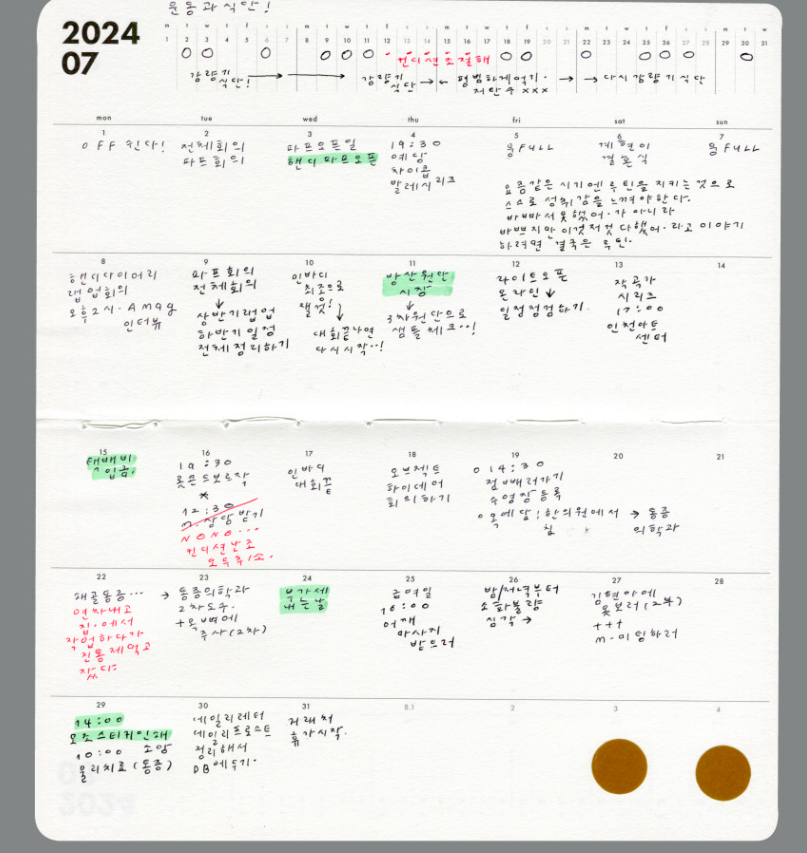 운동과 식단!
2024
07
m t w t f s s m t w t f s s m t w t f s s m t w t f s s m t w
1 2 3 4 5 6 7 8 9 10 11 12 13 14 15 16 17 18 19 20 21 22 23 24 25 26 27 28 29 30 31
컨디션 조절해
감량기
식단!
감량기
식단
평범하게먹기.
저탄수 xxx
다시 감량기 식단
mon tue wed thu fri sat sun
1
OFF 쉰다!
2
전체회의
파프회의
3
파프오픈일
핸디 파프오픈
4
19:30
예당
차이콥
발레시리즈
5
용FULL
6
계현이
결혼식
7
용FULL
요즘같은 시기엔 루틴을 지키는 것으로
스스로 성취감을 느껴야한다.
바빠서 못했어. 가 아니라
바쁘지만 이것저것 다했어. 라고 이야기
하려면 결국은 루틴.
8
핸디다이어리
랩업회의
오후2시.
인터뷰
9
파프회의
전체회의
상반기랩업
하반기일정
전체정리하기
10
인바디
최초으로
잴것!
대회끝나면
다시시작..!
11
방산원단
시장
3차원단으로
샘플체크..!
12
라이트오픈
온라인
일정점검하기.
13
작곡가
시리즈
17:00
인천아트
센터
14
15
택배비
입금.
16
19:30
롯콘드보르작
12:30
상담받기
NONO...
컨디션난조
17
인바디
대회끝
18
오브젝트
회의하기
19
14:30
점빼러가기
수영장등록
한의원에서
침
통증
의학과
20
21
22
통증...
연차내고
집에서
작업하다가
진통제먹고
잤다.
23
통증의학과
2차도수.
주사(2차)
24
부가세
내는날
25
급여일
16:00
어깨
마사지
받으러
26
밤/저녁부터
소화불량
심각
27
김현아에
옷보러(2부)
+++
28
29
14:00
오조스티커인쇄
10:00
물리치료(통증)
30
데일리레터
데일리프로스트
정리해서
DB에두기.
31
거래처
휴가시작.
8.1
2
3
4